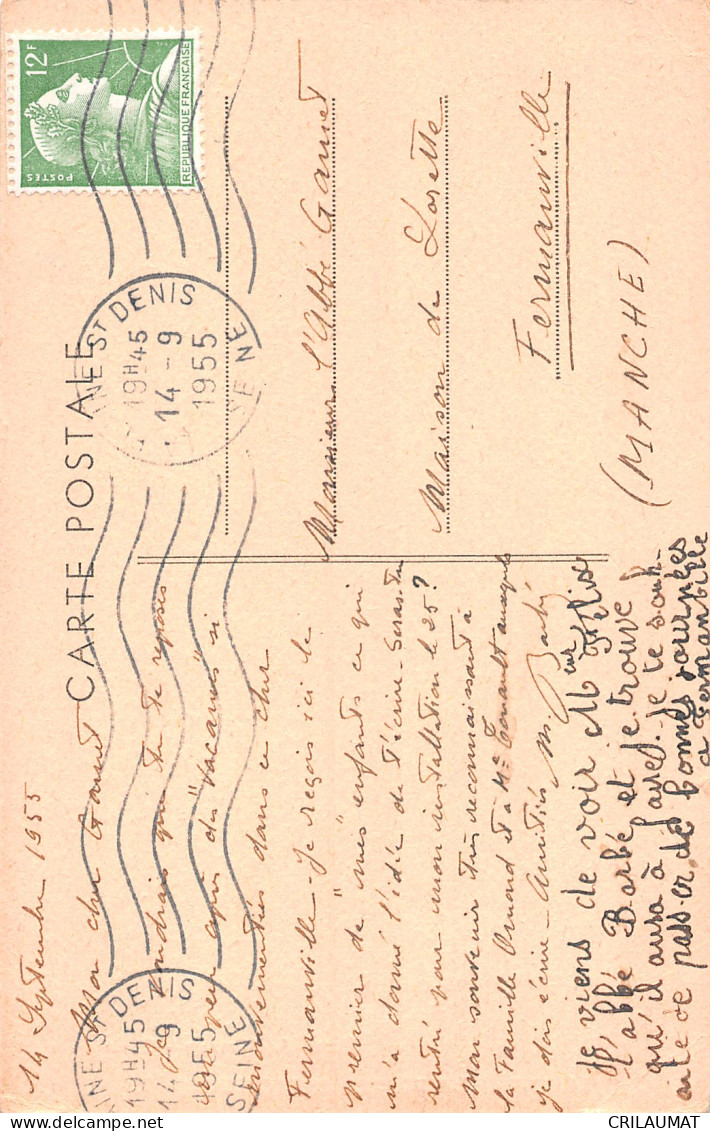 12F
POSTES
REPUBLIQUE FRANÇAISE
CARTE POSTALE
ST DENIS
19H45
14-9
1955
SEINE
ST DENIS
19H45
14-9
1955
SEINE
14 Septembre 1955
Mon cher Gamet
Je voudrais que tu te reposes
un peu après des "vacances" si
mouvementées dans ce cher
Fermanville - Je reçois ici le
premier de "mes" enfants ce qui
m'a donné l'idée de t'écrire - Seras-tu
rentré pour mon installation le 25?
Mon souvenir très reconnaissant à
la famille Onord et à Me auxquels
je dois écrire - Amitiés M. Barbé
Je viens de voir Mr Félix
l'abbé Barbé et je trouve
qu'il aura à faire. Je te souh-
aite de passer de bonnes journées
à Fermanville
Monsieur l'Abbé Gamet
Maison de Lorette
Fermanville
(MANCHE)
CRILAUMAT